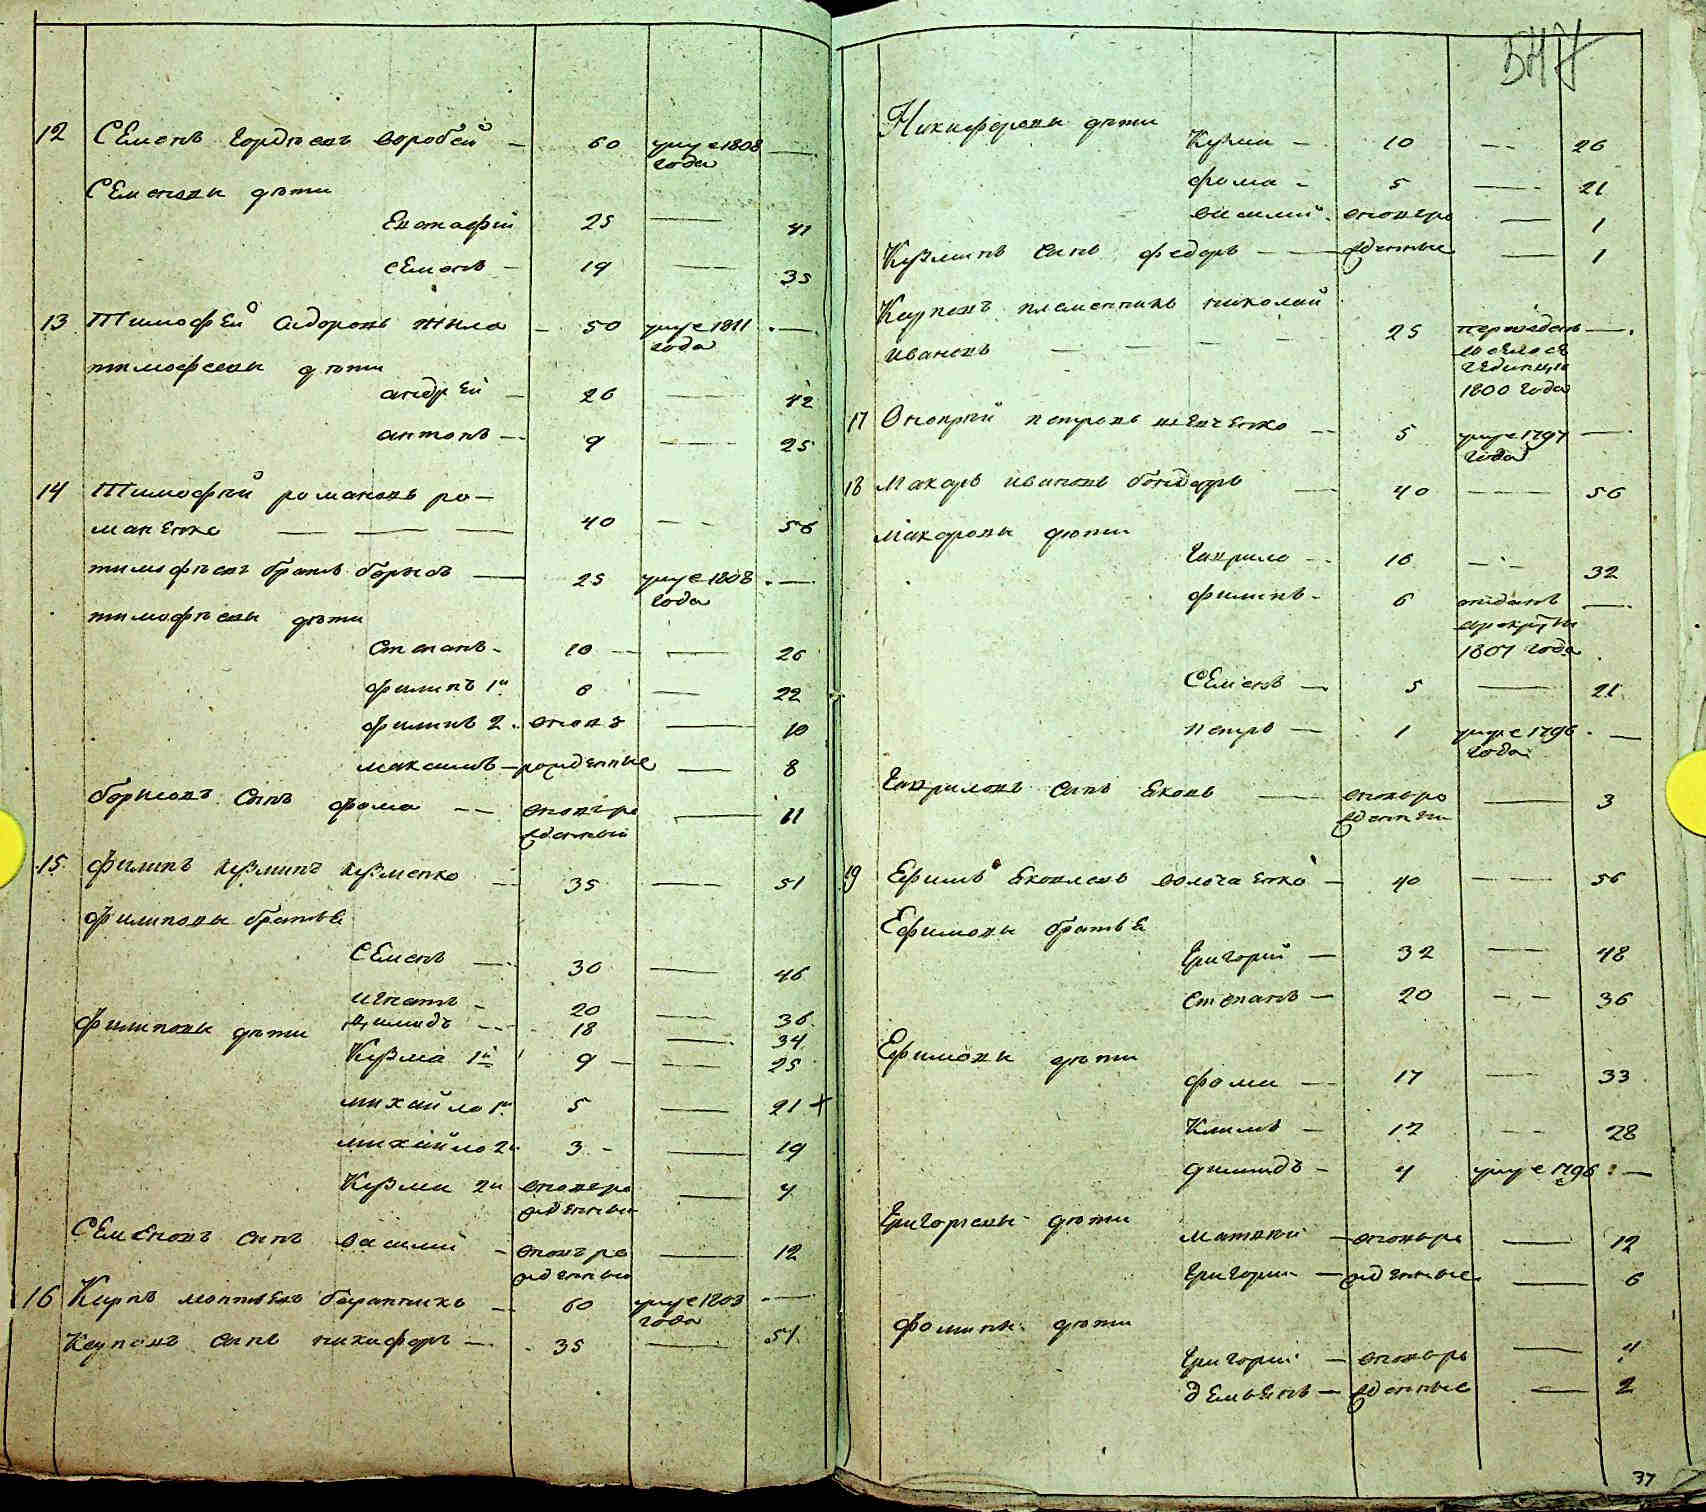 12 Семенъ Гордѣевъ Воробей — 60 умре 1808 —
года
Семеновы дѣти
Евстафий 25 — 41
Семенъ — 19 — 35
13 Тимофей Сидоровъ Жила — 50 умре 1811 —
года
Тимофеевы дѣти
Андрей — 26 — 42
Антонъ — 9 — 25
14 Тимофѣй Романовъ Ро-
маненко — — — 40 — 56
Тимофѣевъ братъ Борисъ — 25 умре 1808 —
года
Тимофѣевы дѣти
Степанъ — 10 — 26
Филипъ 1й 6 — 22
Филипъ 2. вновъ — 10
Максимъ — рожденные — 8
Борисовъ сынъ Фома — — вновъро — 11
жденный
15 Филипъ Кузминъ Кузменко — 35 — 51
Филиповы братья
Семенъ — 30 — 46
Игнатъ — 20 — 36
Филиповы дѣти Димидъ — 18 — 34
Кузма 1й 9 — 25
Михайло 1й 5 — 21 +
Михайло 2й 3 — 19
Кузма 2й вновъро — 4
жденный
Семеновъ сынъ Василий — вновъро — 12
жденный
16 Карпъ Моптѣевъ Баранникъ — 60 умре 1803 —
года
Карповъ сынъ Никифоръ — 35 — 51
БНУ
Никифоровы дѣти
Кузма — 10 — 26
Фома — 5 — 21
Василий. вновъро — 1
Кузминъ сынъ Федоръ — жденные — 1
Карповъ племенникъ Николай
Ивановъ — — — — 25 переведенъ —
1800 года
17 Онопрѣй Петровъ Шевченко — 5 умре 1797 —
года
18 Макаръ Ивановъ Бондаръ — 40 — 56
Макаровы дѣти
Гаврило — 16 — 32
Филипъ — 6 отданъ —
врекруты
1807 года
Семенъ — 5 — 21
Петръ — 1 умре 1796 —
года
Гавриловъ сынъ Яковъ — вновъро — 3
жденный
19 Ефимъ Яковлевъ — 40 — 56
Ефимовы братья
Григорий — 32 — 48
Степанъ — 20 — 36
Ефимовы дѣти
Фома — 17 — 33
Климъ — 12 — 28
Димидъ — 4 умре 1796 —
Григорѣевы дѣти
Матвѣй — вновъро — 12
Григорий — жденные — 6
Фомины дѣти
Григорий — вновъро — 4
Демьянъ — жденные — 2
37